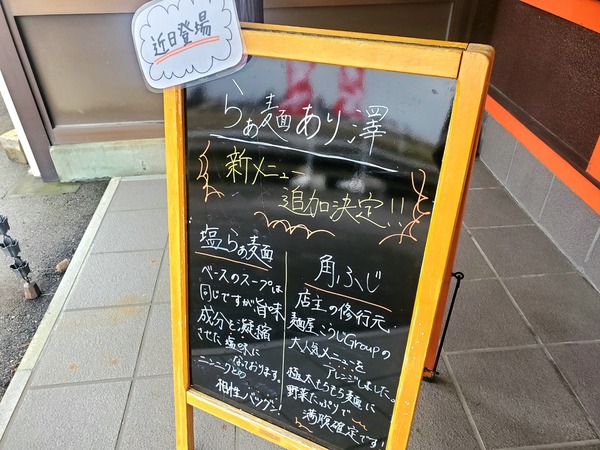 近日登場
らぁ麺あり澤
新メニュー
追加決定!!
塩らぁ麺
ベースのスープは
同じですが旨味
成分を凝縮
させた塩味に
なっております。
ニンニクとの
相性バツグン!
角ふじ
店主の修行元
麺屋こうじGroupの
大人気メニューを
アレンジしました。
極太もちもち麺に
野菜たっぷりで
満腹確定です!